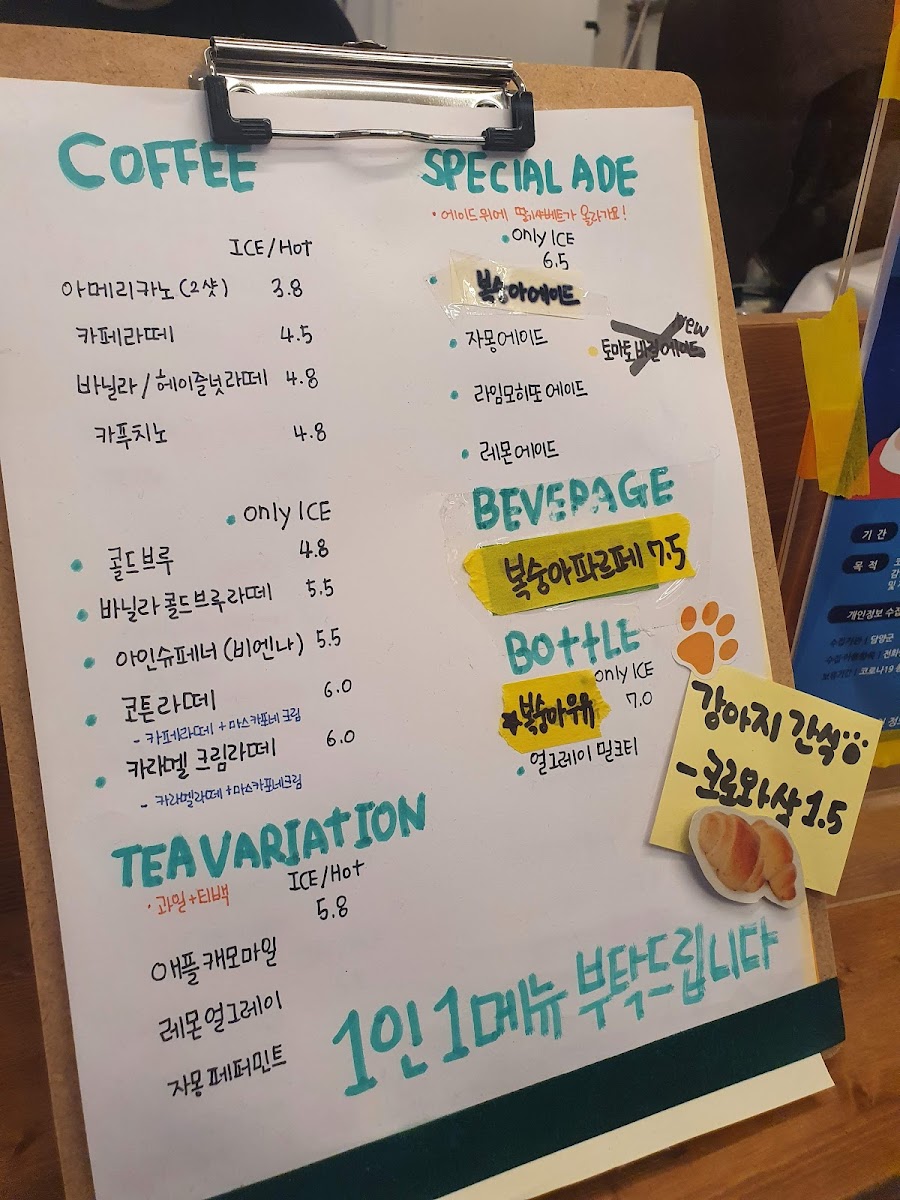 COFFEE
ICE/Hot
아메리카노 (2샷) 3.8
카페라떼 4.5
바닐라/헤이즐넛라떼 4.8
카푸치노 4.8
only ICE
콜드브루 4.8
바닐라 콜드브루라떼 5.5
아인슈페너 (비엔나) 5.5
코튼라떼 6.0
- 카페라떼 + 마스카포네 크림
카라멜 크림라떼 6.0
- 카라멜라떼 + 마스카포네크림
TEA VARIATION
· 과일+티백
ICE/Hot
5.8
애플 캐모마일
레몬 얼그레이
자몽 페퍼민트
SPECIAL ADE
· 에이드위에 딸기샤베트가 올라가요!
only ICE
6.5
복숭아에이드
자몽에이드
new
토마토바질에이드
라임모히또 에이드
레몬에이드
BEVERAGE
복숭아파르페 7.5
BOttLE
only ICE
복숭아우유 7.0
얼그레이 밀크티
강아지 간식
- 크로와상 1.5
1인 1메뉴 부탁드립니다
기간
목적
개인정보 수집
담양군
코로나19